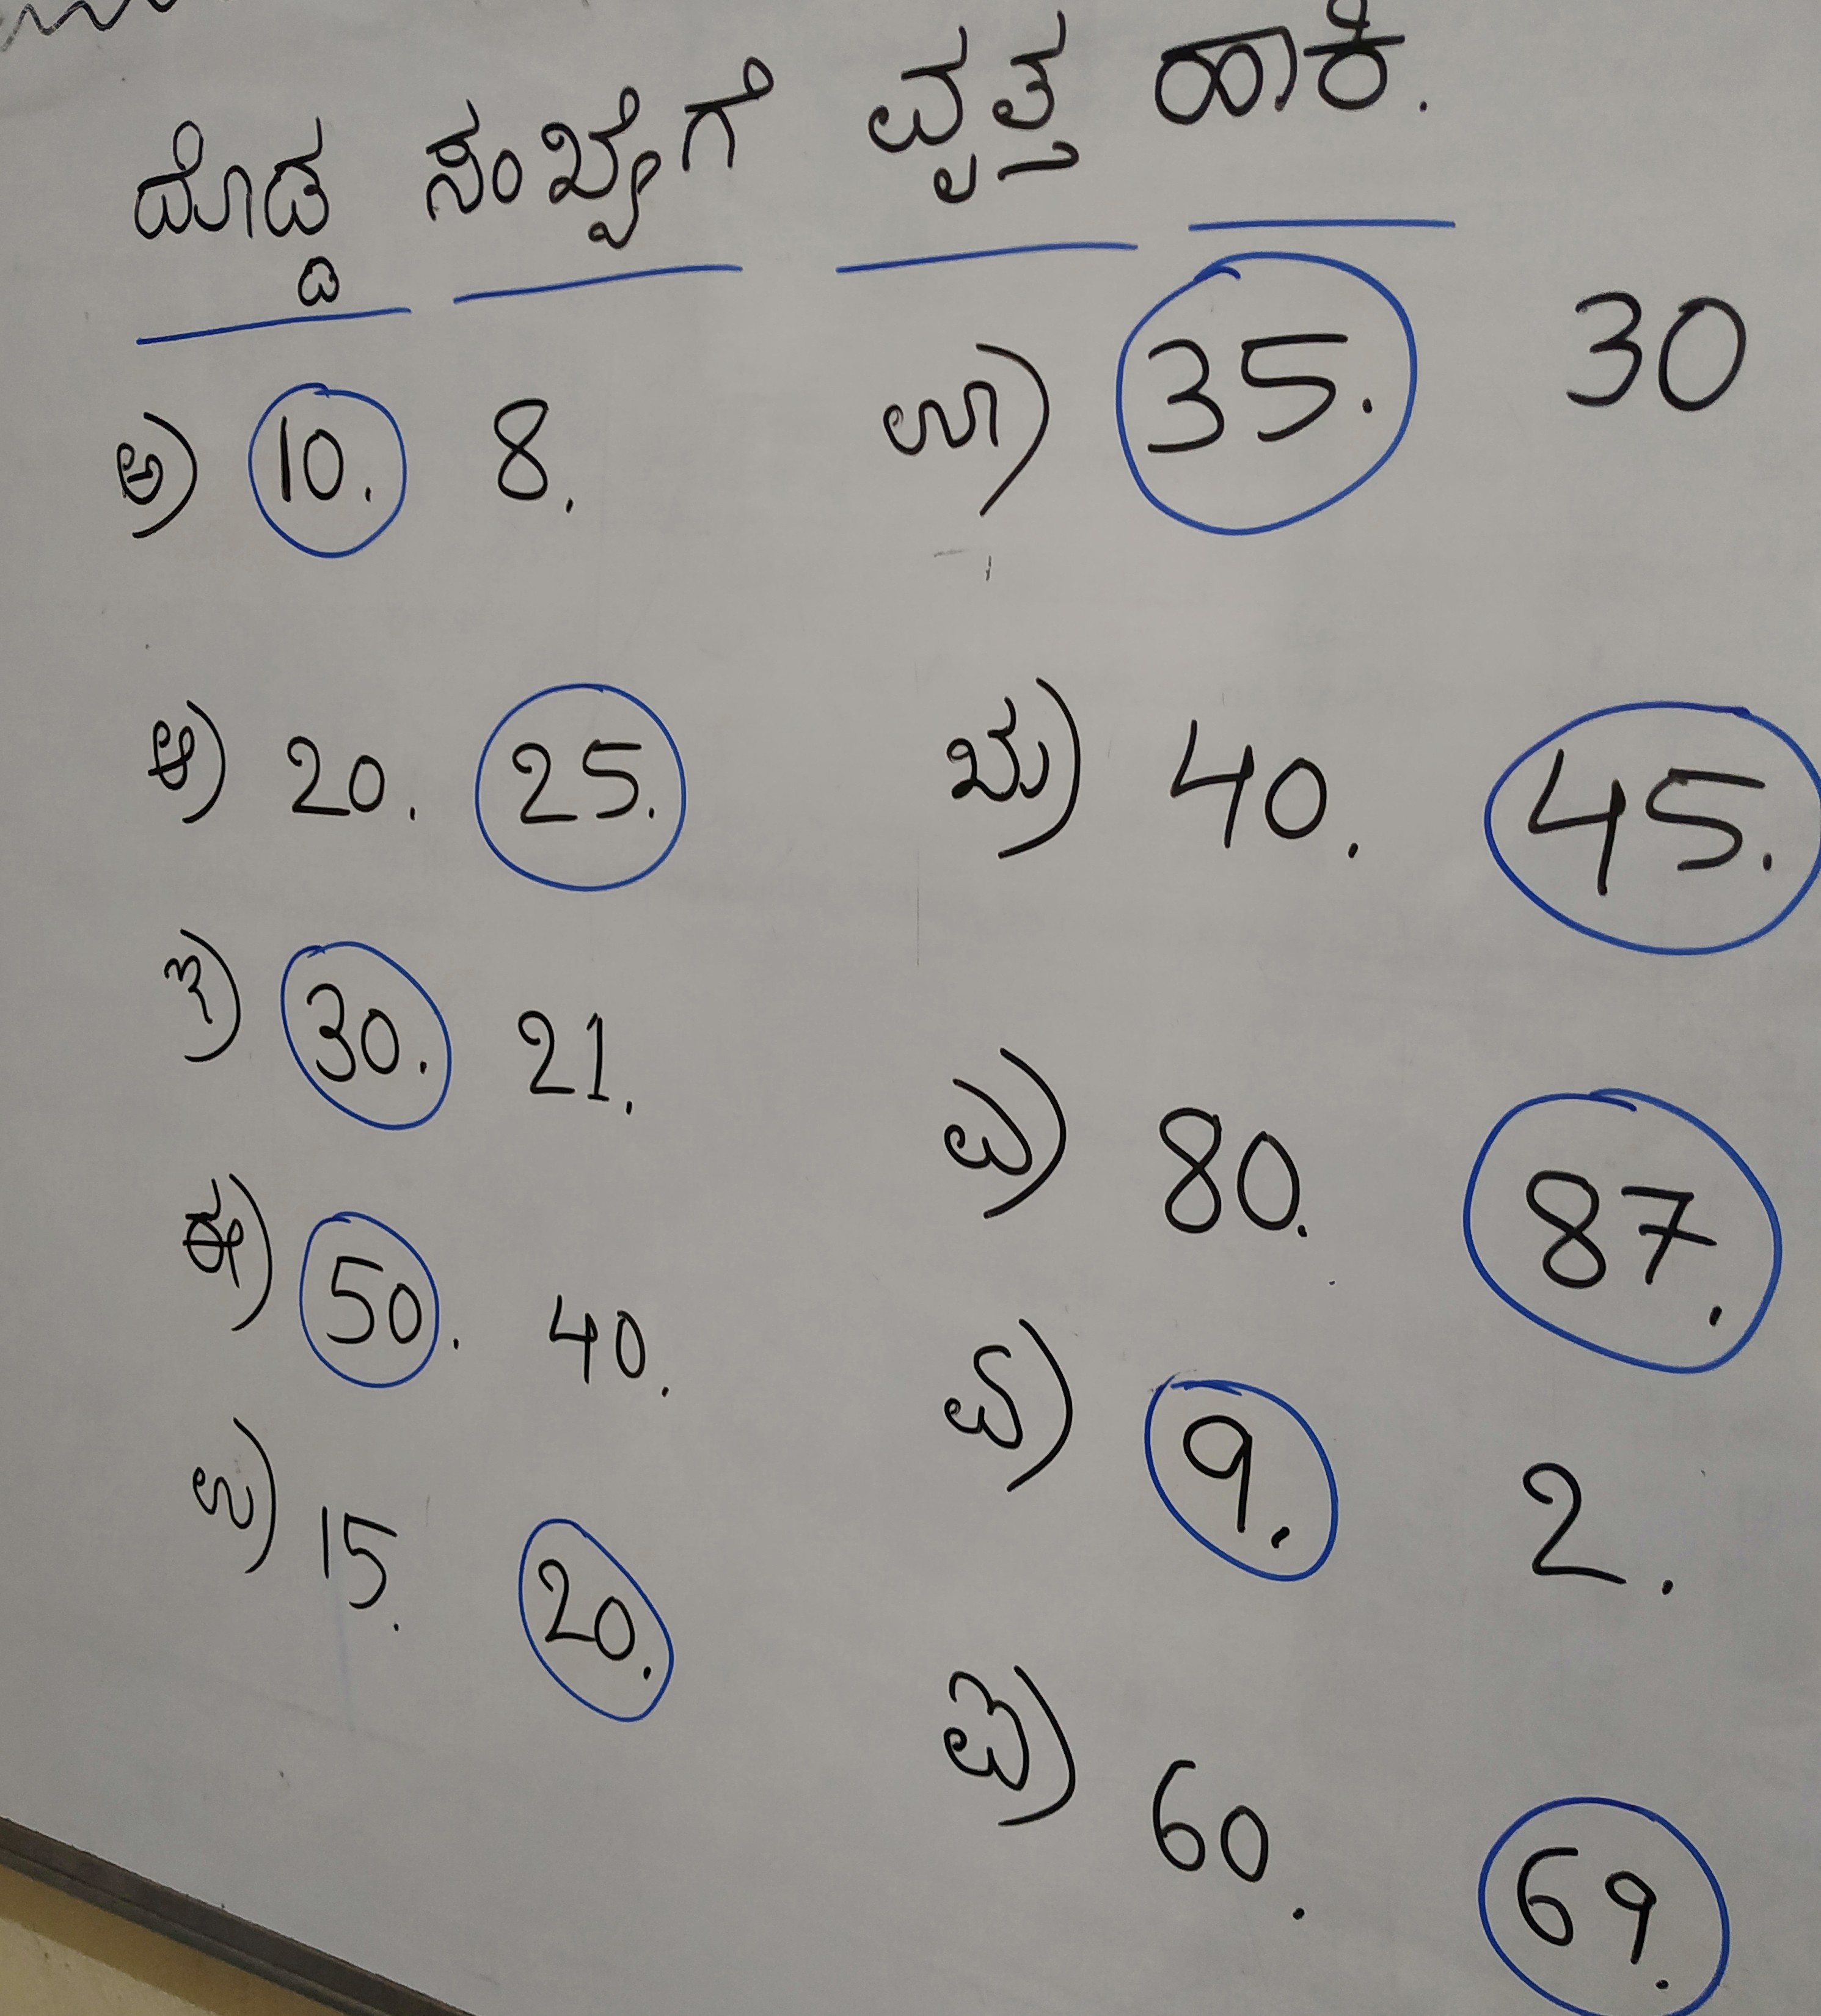 ದೊಡ್ಡ ಸಂಖ್ಯೆಗೆ ವೃತ್ತ ಹಾಕಿ.
ಅ) 10. 8.
ಆ) 20. 25.
ಇ) 30. 21.
ಈ) 50. 40.
ಉ) 15. 20.
ಊ) 35. 30
ಋ) 40. 45.
ಎ) 80. 87.
ಏ) 9. 2.
ಐ) 60. 69.